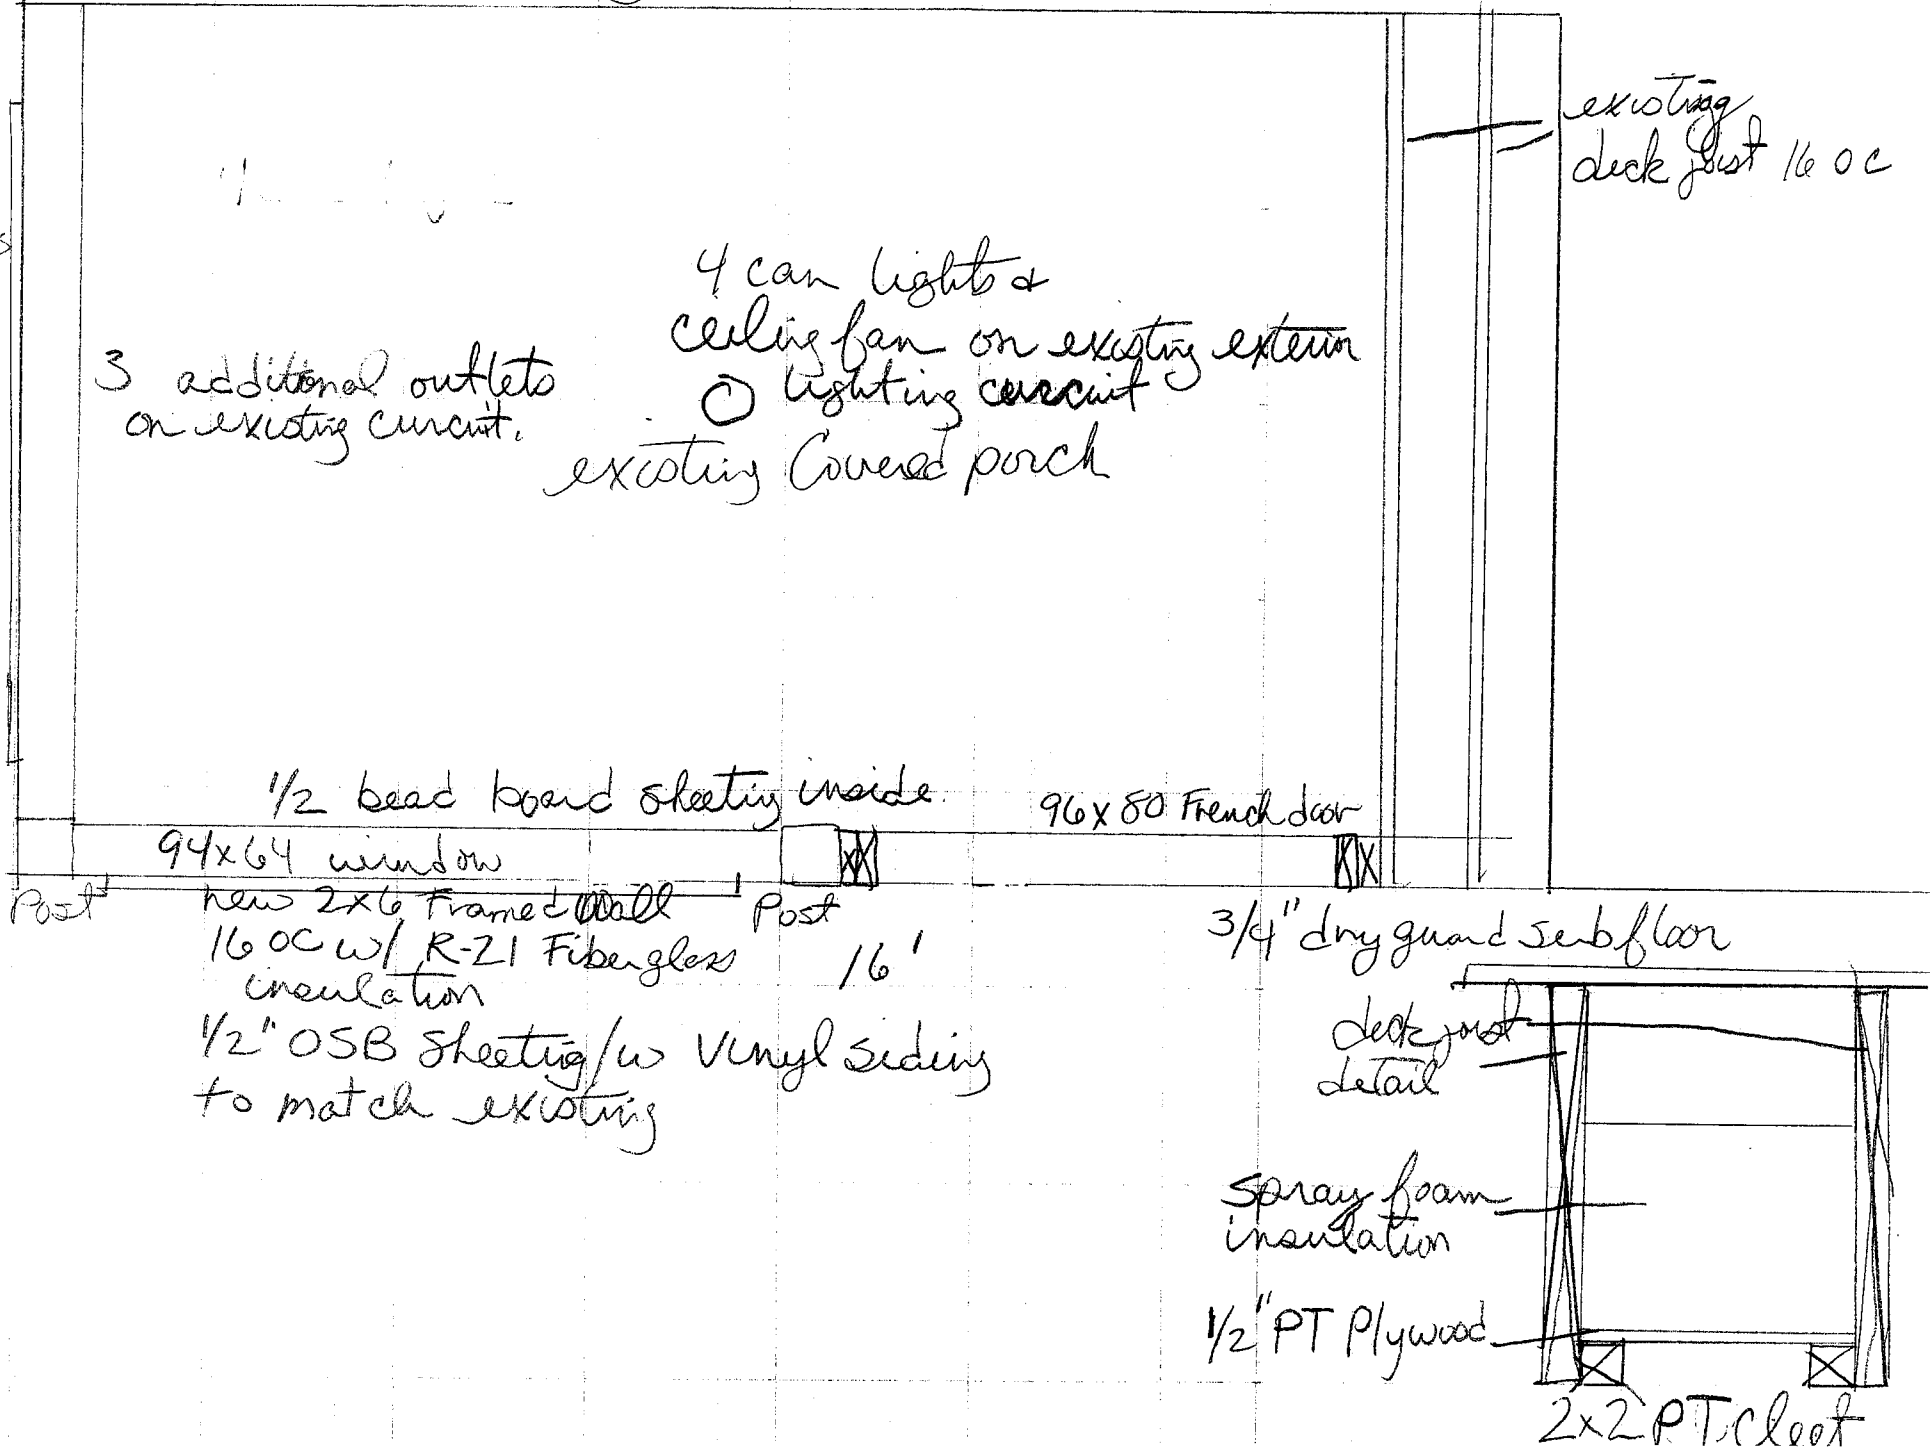 existing
deck joist 16 OC
4 can lights &
ceiling fan on existing exterior
lighting curcuit
3 additional outlets
on existing curcuit.
existing Covered porch
1/2 bead board sheeting inside
96x80 French door
94x64 window
Post
new 2x6 Framed Wall
Post
16 OC w/ R-21 Fiberglass
insulation
16'
1/2" OSB Sheeting/w Vinyl siding
to match existing
3/4" dry guard subfloor
deck joist
detail
spray foam
insulation
1/2" PT Plywood
2x2 PT. Cleet